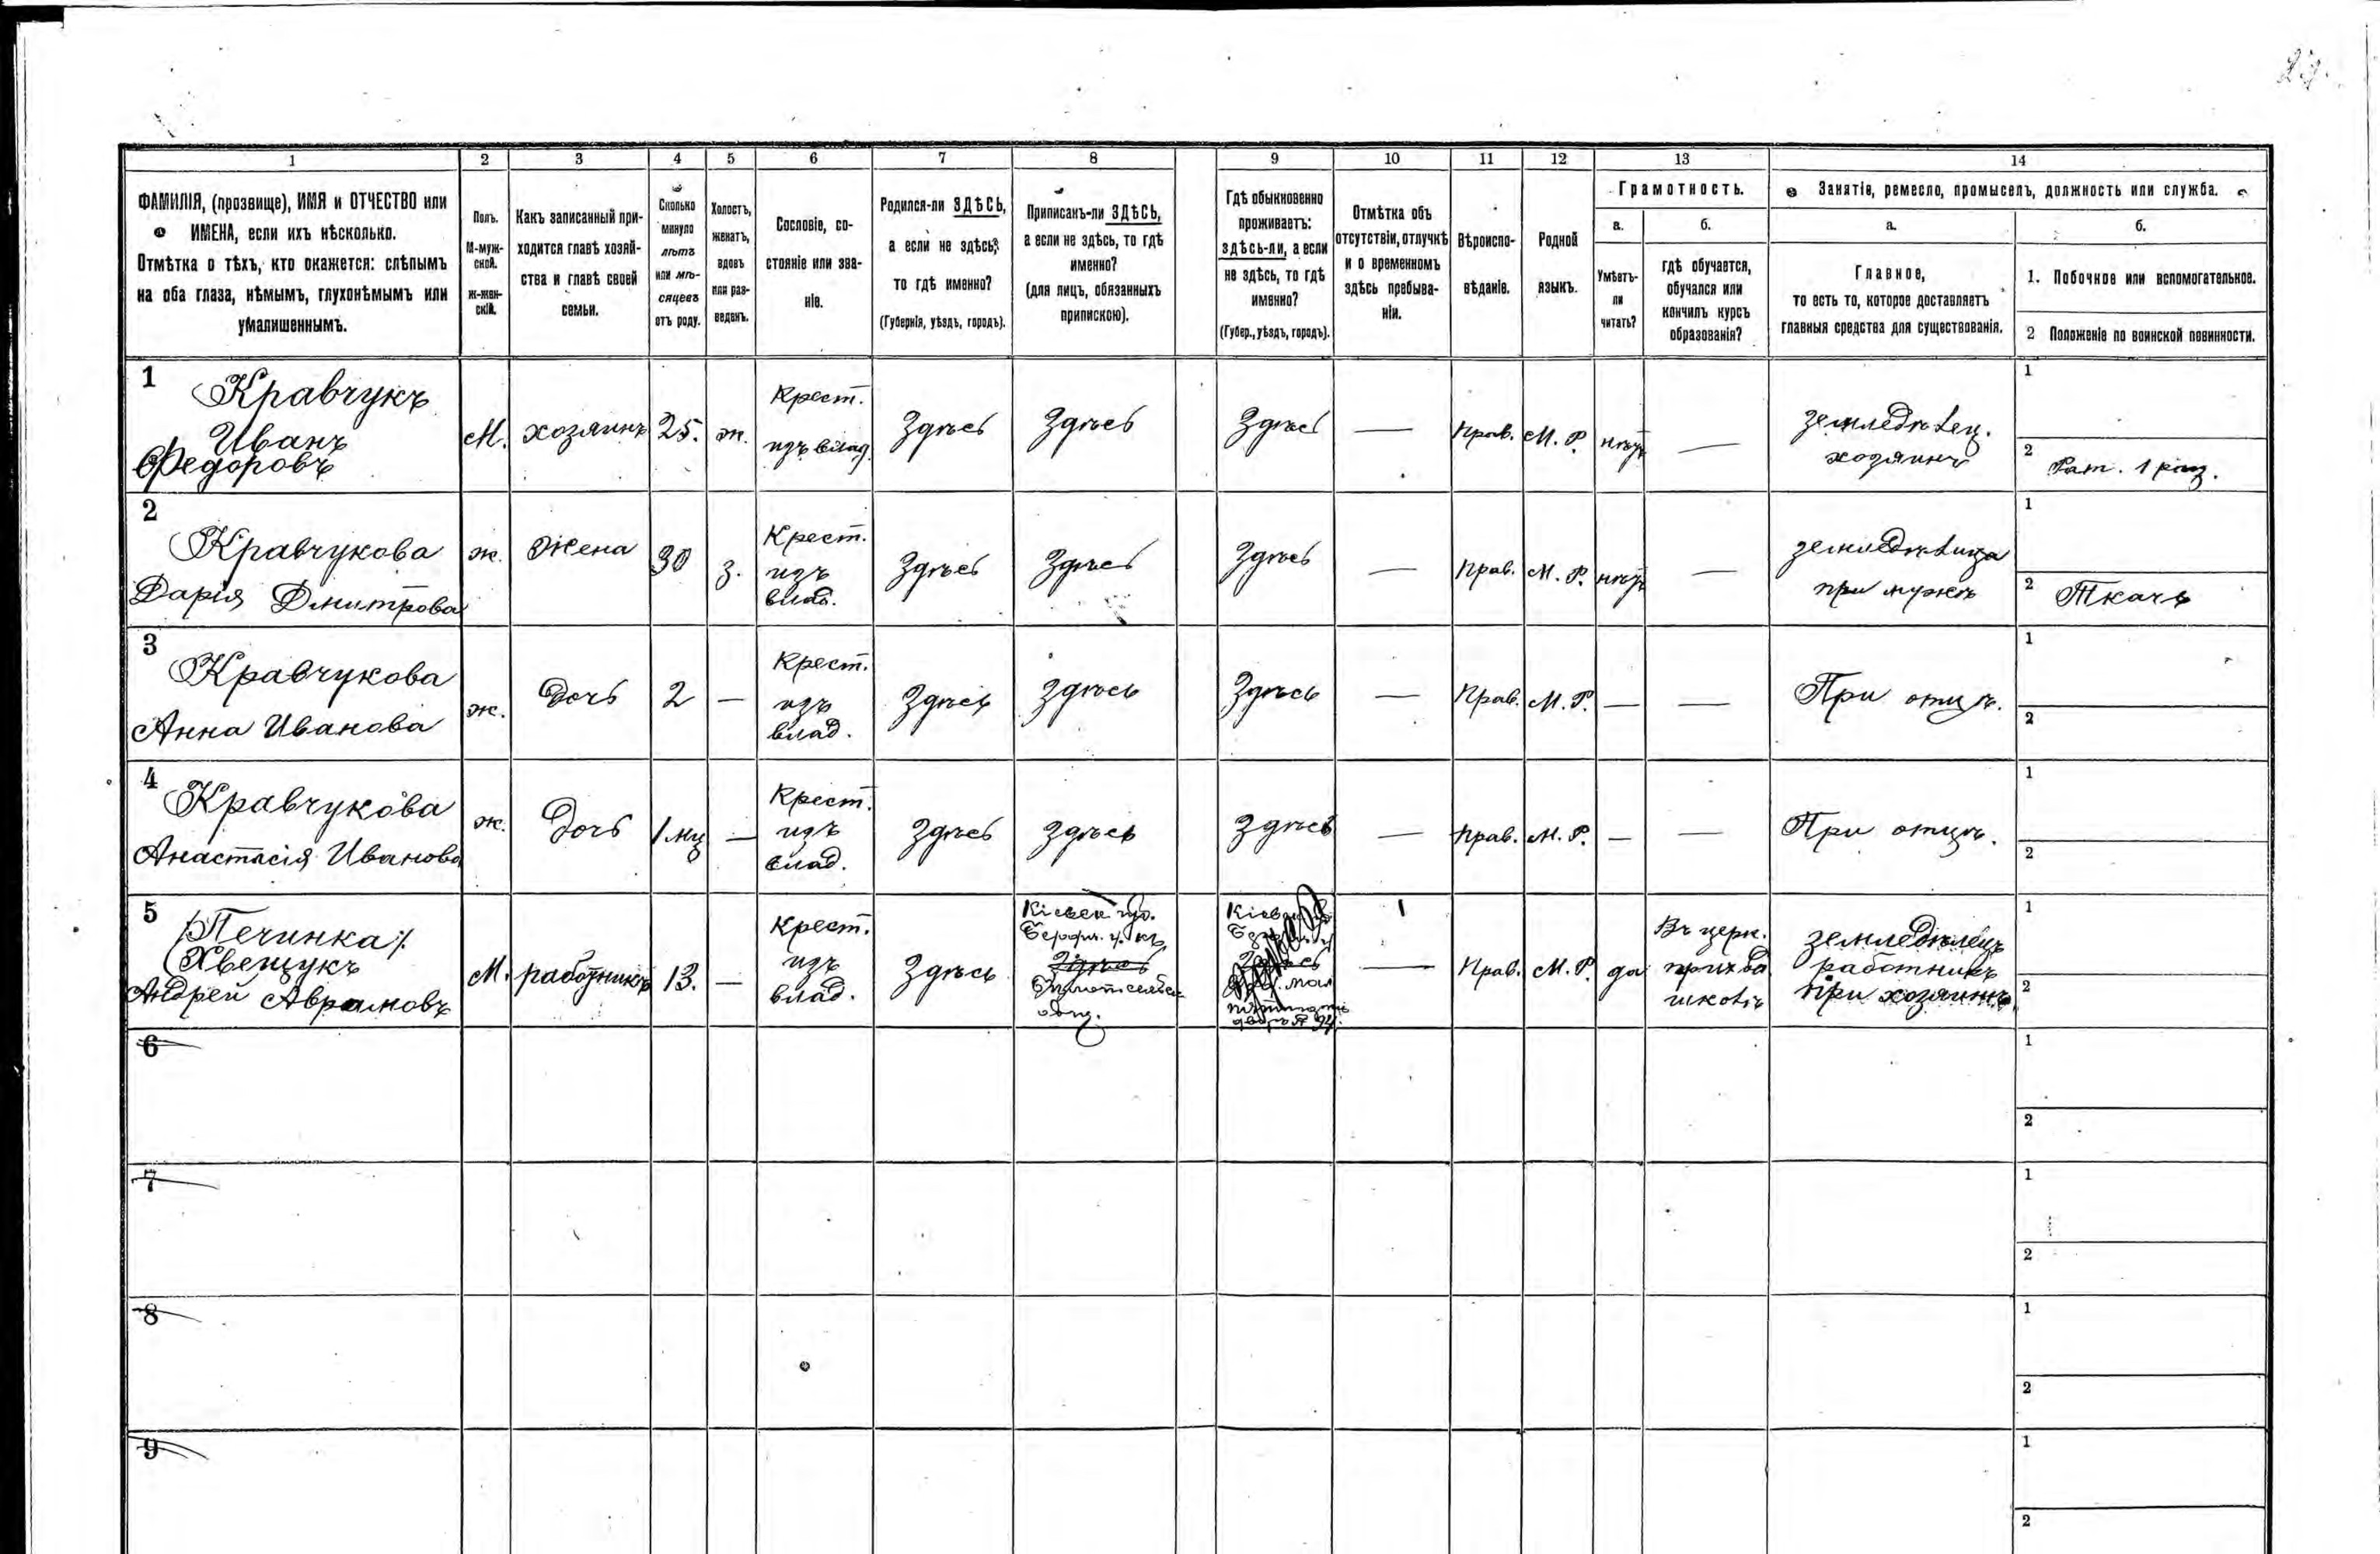 1 2 3 4 5 6 7 8 9 10 11 12 13 14
ФАМИЛІЯ, (прозвище), ИМЯ и ОТЧЕСТВО или
ИМЕНА, если ихъ нѣсколько.
Отмѣтка о тѣхъ, кто окажется: слѣпымъ
на оба глаза, нѣмымъ, глухонѣмымъ или
умалишеннымъ.
Полъ.
М-муж-
ской.
ж-жен-
скій.
Какъ записанный при-
ходится главѣ хозяй-
ства и главѣ своей
семьи.
Сколько
минуло
лѣтъ
или мѣ-
сяцевъ
отъ роду.
Холостъ,
женатъ,
вдовъ
или раз-
веденъ.
Сословіе, со-
стояніе или зва-
ніе.
Родился-ли ЗДѢСЬ,
а если не здѣсь,
то гдѣ именно?
(Губернія, уѣздъ, городъ).
Приписанъ-ли ЗДѢСЬ,
а если не здѣсь, то гдѣ
именно?
(для лицъ, обязанныхъ
припискою).
Гдѣ обыкновенно
проживаетъ:
здѣсь-ли, а если
не здѣсь, то гдѣ
именно?
(Губер., уѣздъ, городъ).
Отмѣтка объ
отсутствіи, отлучкѣ
и о временномъ
здѣсь пребыва-
ніи.
Вѣроиспо-
вѣданіе.
Родной
языкъ.
Грамотность.
а.
Умѣетъ-
ли
читать?
б.
гдѣ обучается,
обучался или
кончилъ курсъ
образованія?
Занятіе, ремесло, промыселъ, должность или служба.
а.
Главное,
то есть то, которое доставляетъ
главныя средства для существованія.
б.
1. Побочное или вспомогательное.
2 Положеніе по воинской повинности.
1
Кравчукъ
Иванъ
Федоровъ
М.
хозяинъ
25.
ж.
Крест.
изъ влад.
Здѣсь
Здѣсь
Здѣсь
—
Прав.
М. Р.
нѣтъ
—
земледѣлец.
хозяинъ
1
2 Рат. 1 раз.
2
Кравчукова
Дарія Дмитрова
ж.
Жена
30
з.
Крест.
изъ
влад.
Здѣсь
Здѣсь
Здѣсь
—
Прав.
М. Р.
нѣтъ
—
земледѣлица
при мужѣ
1
2 Ткачъ
3
Кравчукова
Анна Иванова
ж.
Дочь
2
—
Крест.
изъ
влад.
Здѣсь
Здѣсь
Здѣсь
—
Прав.
М. Р.
—
—
При отцѣ.
1
2
4
Кравчукова
Анастасія Иванова
ж.
Дочь
1 мц
—
Крест.
изъ
влад.
Здѣсь
Здѣсь
Здѣсь
—
Прав.
М. Р.
—
—
При отцѣ.
1
2
5
/Печинка/.
Хвещукъ
Андрей Аврамовъ
М.
работникъ
13.
—
Крест.
изъ
влад.
Здѣсь
Кіевск
Здѣсь
общ.
—
Прав.
М. Р.
да
Въ церк.
школѣ
земледѣлецъ
работникъ
при хозяинѣ
1
2
6
1
2
7
1
2
8
1
2
9
1
2